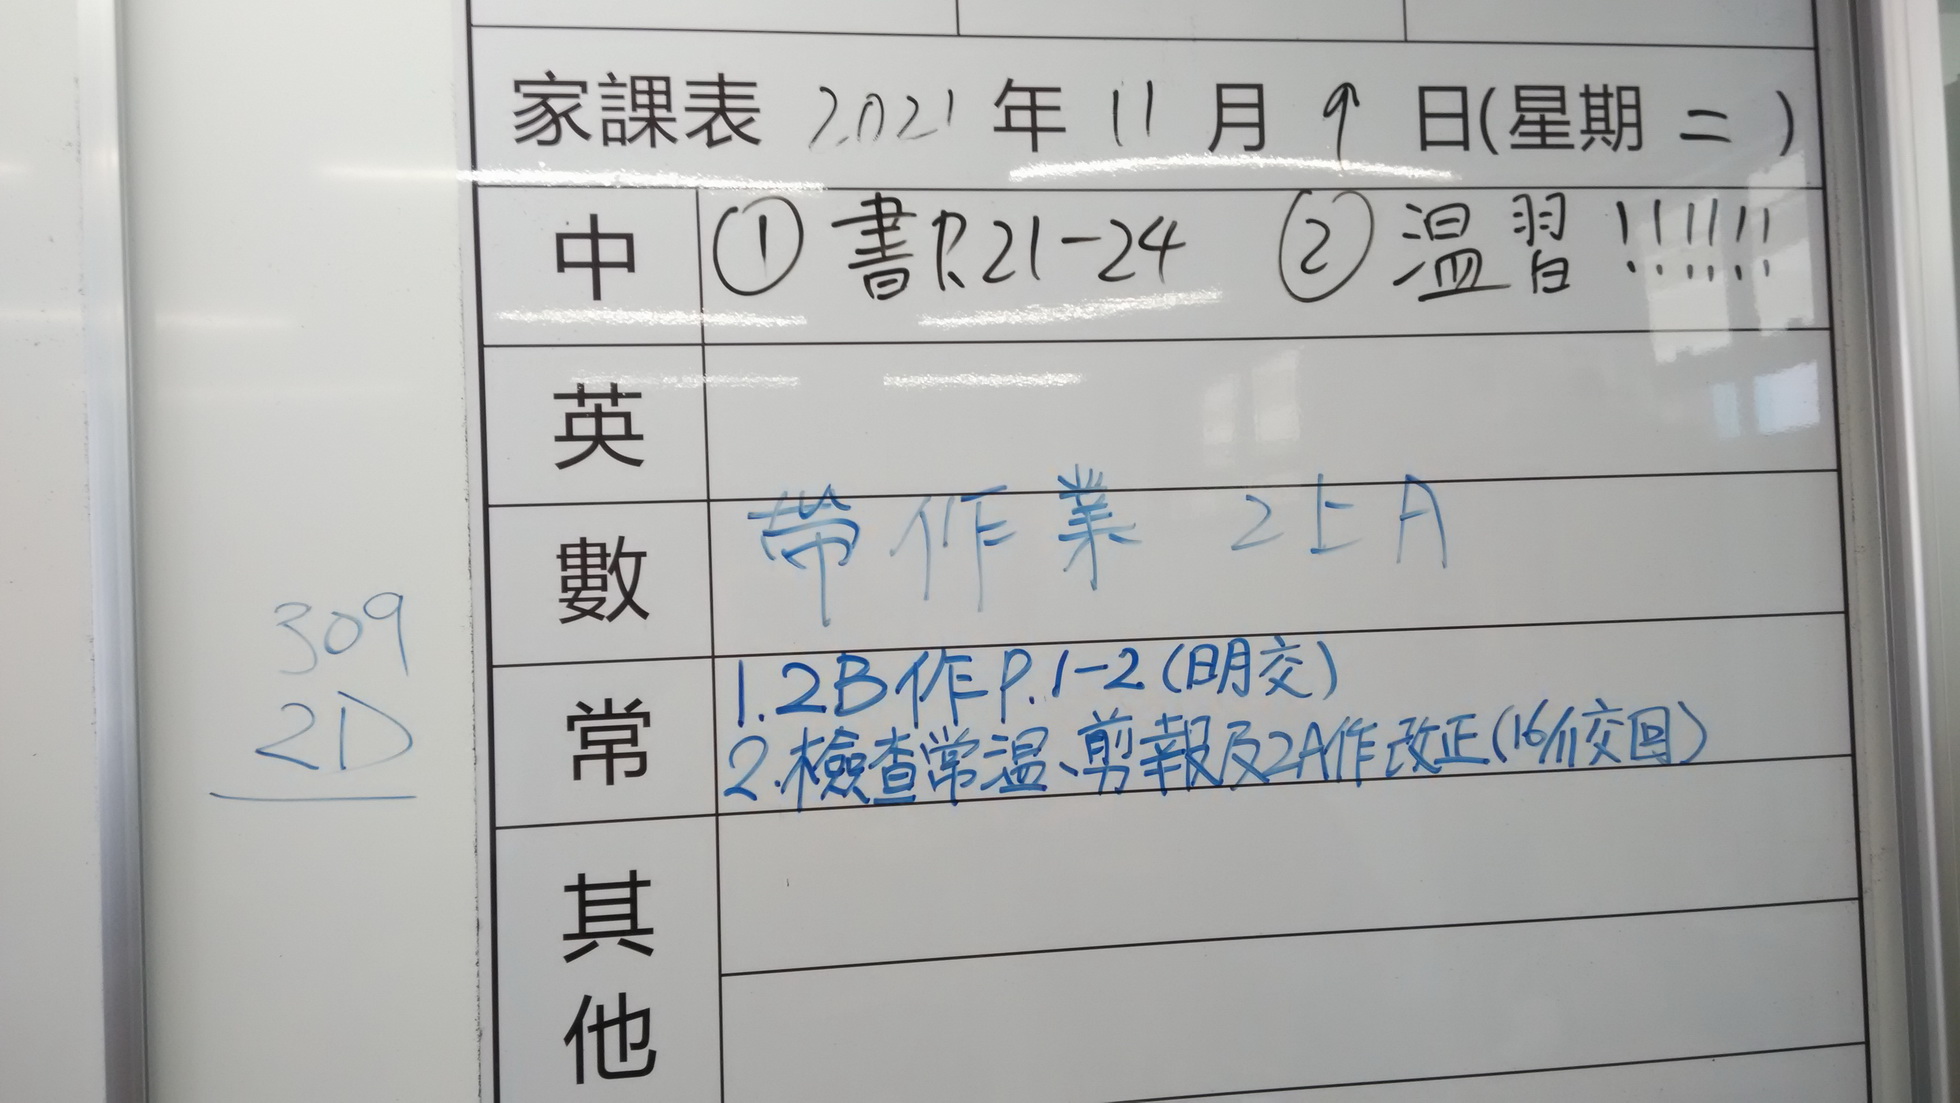 家課表 2021 年 11 月 9 日(星期 二 )
中 ① 書P.21-24 ② 温習!!!!!!
英
數 帶作業 2上A
常 1.2B作P.1-2(明交)
2.檢查常温、剪報及2A作改正(16/11交回)
其他
309
2D